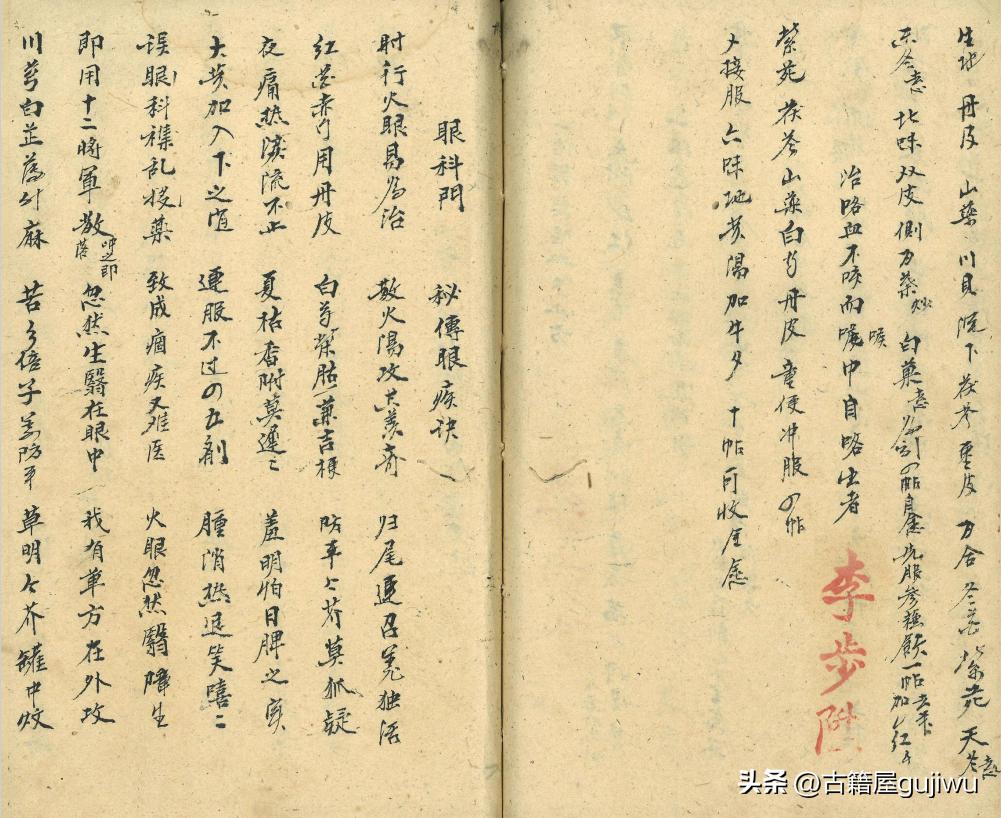 生地 丹皮 山药 川貝 阮下 茯苓 垂皮 百合 冬花 紫苑 天冬
麦冬 北味 双皮 側百葉炒 白菓 四帖 先服参蘇飲一帖 加红
治咯血不咳而喉中自咯出者
紫苑 茯苓 山药 白芍 丹皮 童便冲服 四帖
又接服 六味地黄湯加牛夕 十帖可收全愈
李步陞
眼科門 秘傳眼疾诀
时行火眼易為治 散火湯攻其羡奇 归尾連召羌独活
红花赤芍用丹皮 白芍柴胡兼吉梗 防平七芥莫狐疑
夜痛热淚流不止 夏枯香附莫遲之 羞明怕日脾之实
大黄加入下之宜 連服不过四五剂 腫消热退笑嘻二
误眼科襍乱投药 致成痼疾又难医 火眼忽然翳障生
即用十二將軍散 忽然生翳在眼中 我有单方在外攻
川芎白芷為升麻 苦 倍子羌防平 草明 芥罐中炆
头条 @古籍屋gujiwu